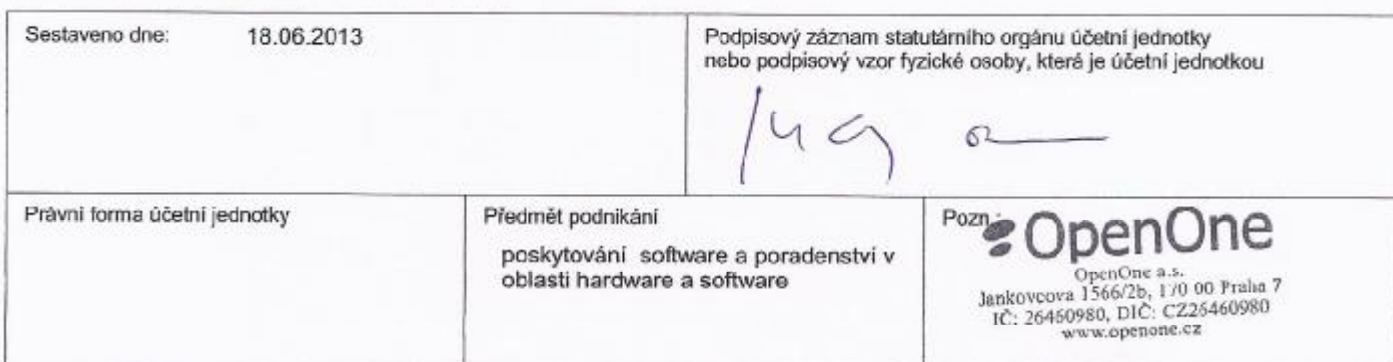 Sestaveno dne: 18.06.2013
Podpisový záznam statutárního orgánu účetní jednotky
nebo podpisový vzor fyzické osoby, která je účetní jednotkou
Právní forma účetní jednotky
Předmět podnikání
poskytování software a poradenství v
oblasti hardware a software
Pozn
OpenOne
OpenOne a.s.
Jankovcova 1566/2b, 170 00 Praha 7
IČ: 26460980, DIČ: CZ26460980
www.openone.cz